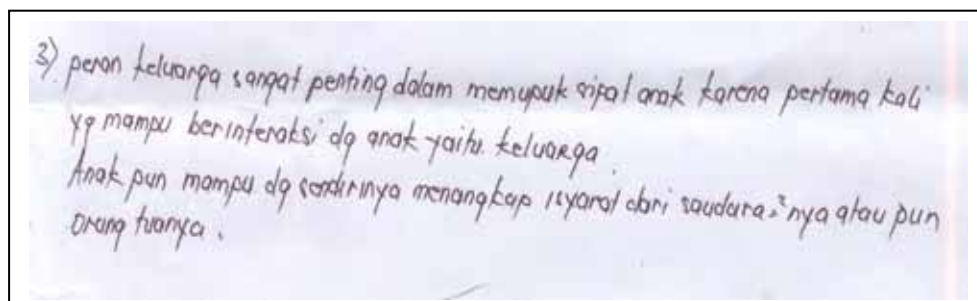 3) peran keluarga sangat penting dalam memupuk sipat anak karena pertama kali
yg mampu berinteraksi dg anak yaitu keluarga.
Anak pun mampu dg sendirinya menangkap isyarat dari saudara-²nya atau pun
orang tuanya.